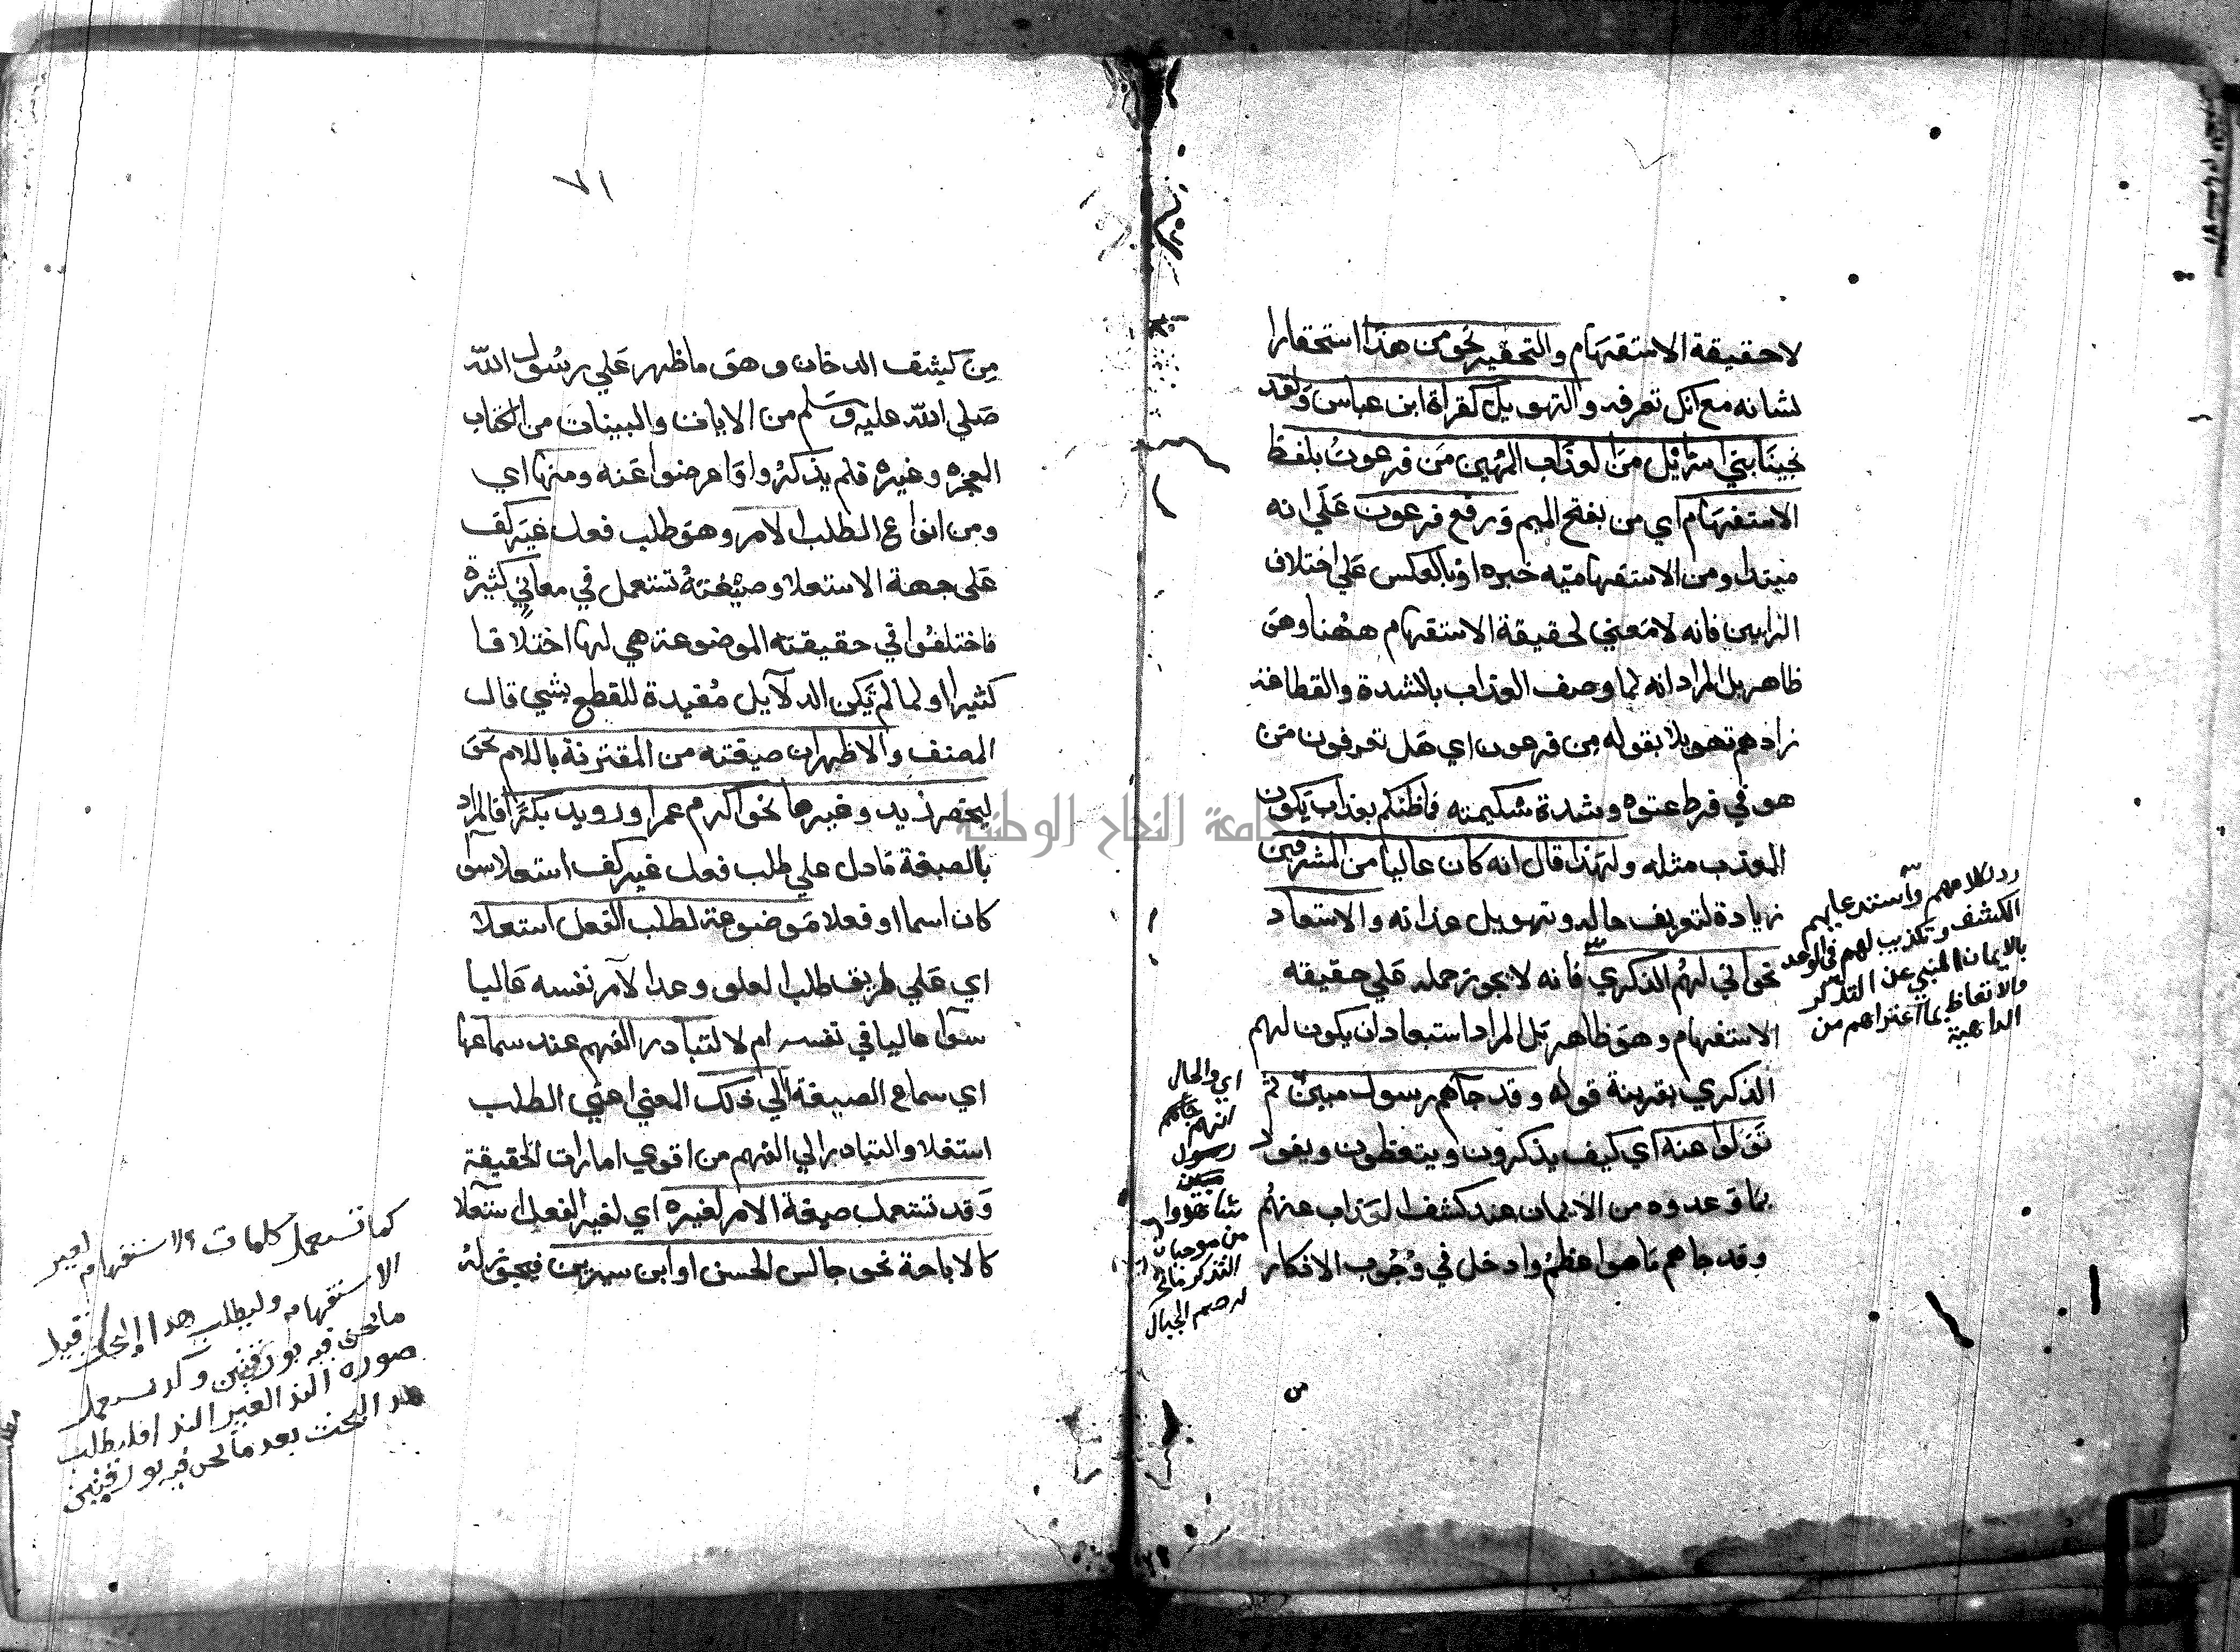 لا حقيقة الاستفهام والتحقير نحو من هذا استحقارا
لشانه مع انك تعرفه والتهويل كقراة ابن عباس ولقد
نجينا بني اسرائيل من العذاب المهين من فرعون بلفظ
الاستفهام اي من بفتح الميم ورفع فرعون على انه
مبتدا ومن الاستفهامية خبره او بالعكس على اختلاف
الرايين فانه لا معني لحقيقة الاستفهام ههنا وهو
ظاهر بل المراد انه لما وصف العذاب بالشدة والفظاعة
زادهم تهويلا بقوله من فرعون اي هل تعرفون من
هو في فرط عتوه وشدة شكيمته فما ظنكم بعذاب يكون
المعذب مثله ولهذا قال انه كان عاليا من المسرفين
زيادة لتعريف حاله وتهويل عذابه والاستبعاد
نحو اني لهم الذكري فانه لا يجوز حمله على حقيقة
الاستفهام وهو ظاهر بل المراد استبعاد ان يكون لهم
الذكري بقرينة قوله وقد جآهم رسول مبين ثم
تولوا عنه اي كيف يذكرون ويتعظون ويفون
بما وعدوه من الايمان عند كشف العذاب عنهم
وقد جاهم ما هو اعظم وادخل في وجوب الاذكار
رد لكلامهم واستدعايهم
الكشف وتكذيب لهم في الوعد
بالايمان المنبي عن التذكر
والاتعاظ بما اعتراهم من
الداهية
اي والحال
انهم جاهم
رسول
مبين
من موجبات
التذكر
من
٧١
من كشف الدخان وهو ما ظهر علي رسول الله
صلي الله عليه وسلم من الايات والبينات من الكتاب
المعجزه وغيره فلم يذكروا واعرضوا عنه ومنها اي
ومن انواع الطلب الامر وهو طلب فعل غير كف
على جهة الاستعلا وصيغته تستعمل في معاني كثيرة
فاختلفوا في حقيقته الموضوعة هي لها اختلافا
كثيرا ولما لم تكن الدلآيل مفيدة للقطع بشي قال
المصنف والاظهر ان صيغته من المقترنة باللام نحو
ليحضر زيد وغيرها نحو اكرم عمرا ورويد بكرا فالمراد
بالصيغة ما دل علي طلب فعل غير كف استعلا سوآ
كان اسما او فعلا موضوعة لطلب الفعل استعلا
اي على طريق طلب العلو وعد الآمر نفسه عاليا
سوآ عاليا في نفسه ام لا لتبادر الفهم عند سماعها
اي سماع الصيغة الي ذلك المعني اعني الطلب
استعلا والتبادر الي الفهم من اقوي امارات الحقيقة
وقد تستعمل صيغة الامر لغيره اي لغير الفعل استعلا
كالاباحة نحو جالس الحسن او ابن سيرين فيجوز له
كما تستعمل كلمات الاستفهام لغير
الاستفهام وليطلب هذا
ما نحن فيه بورقتين وكذا تستعمل
صورة الندا لغير الندا فليطلب
هذا البحث بعد ما نحن فيه بورقتين
جامعة النجاح الوطنية